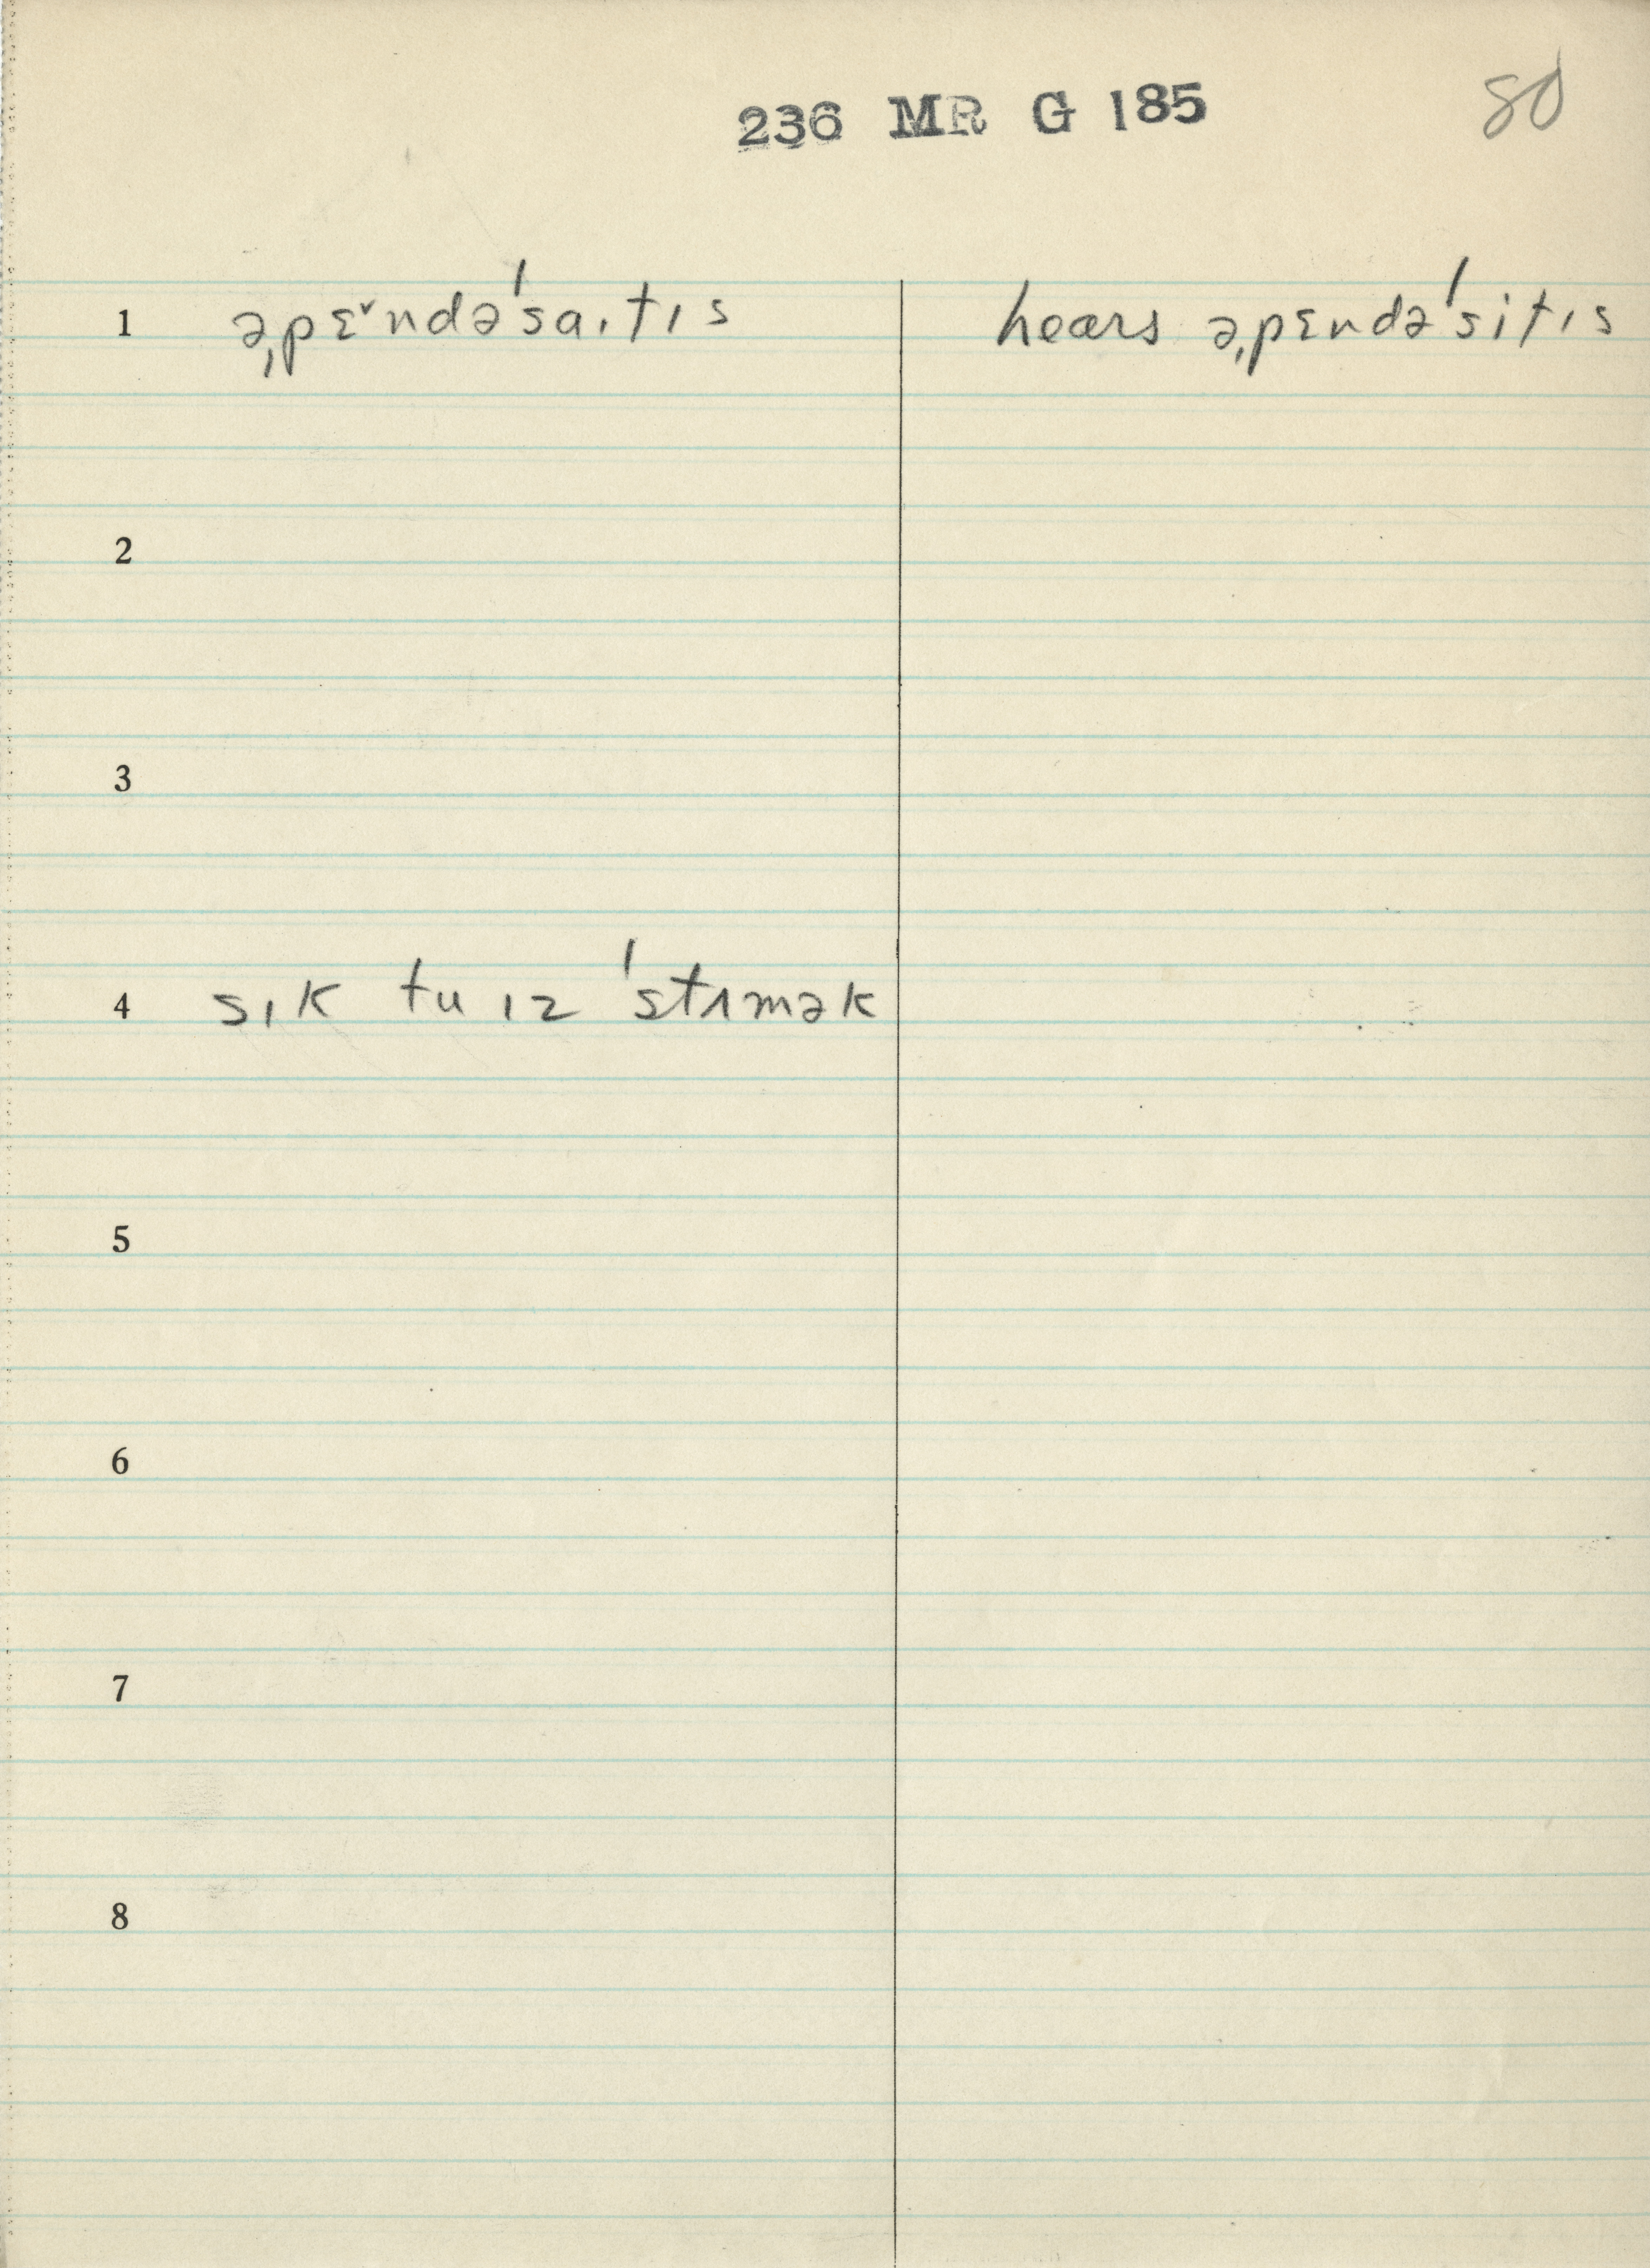 236 MR G 185
80
1 əˌpɛ˅ndəˈsaɪtɪs hears əˌpɛndəˈsitɪs
2
3
4 sɪk tu ɪz ˈstʌmək
5
6
7
8